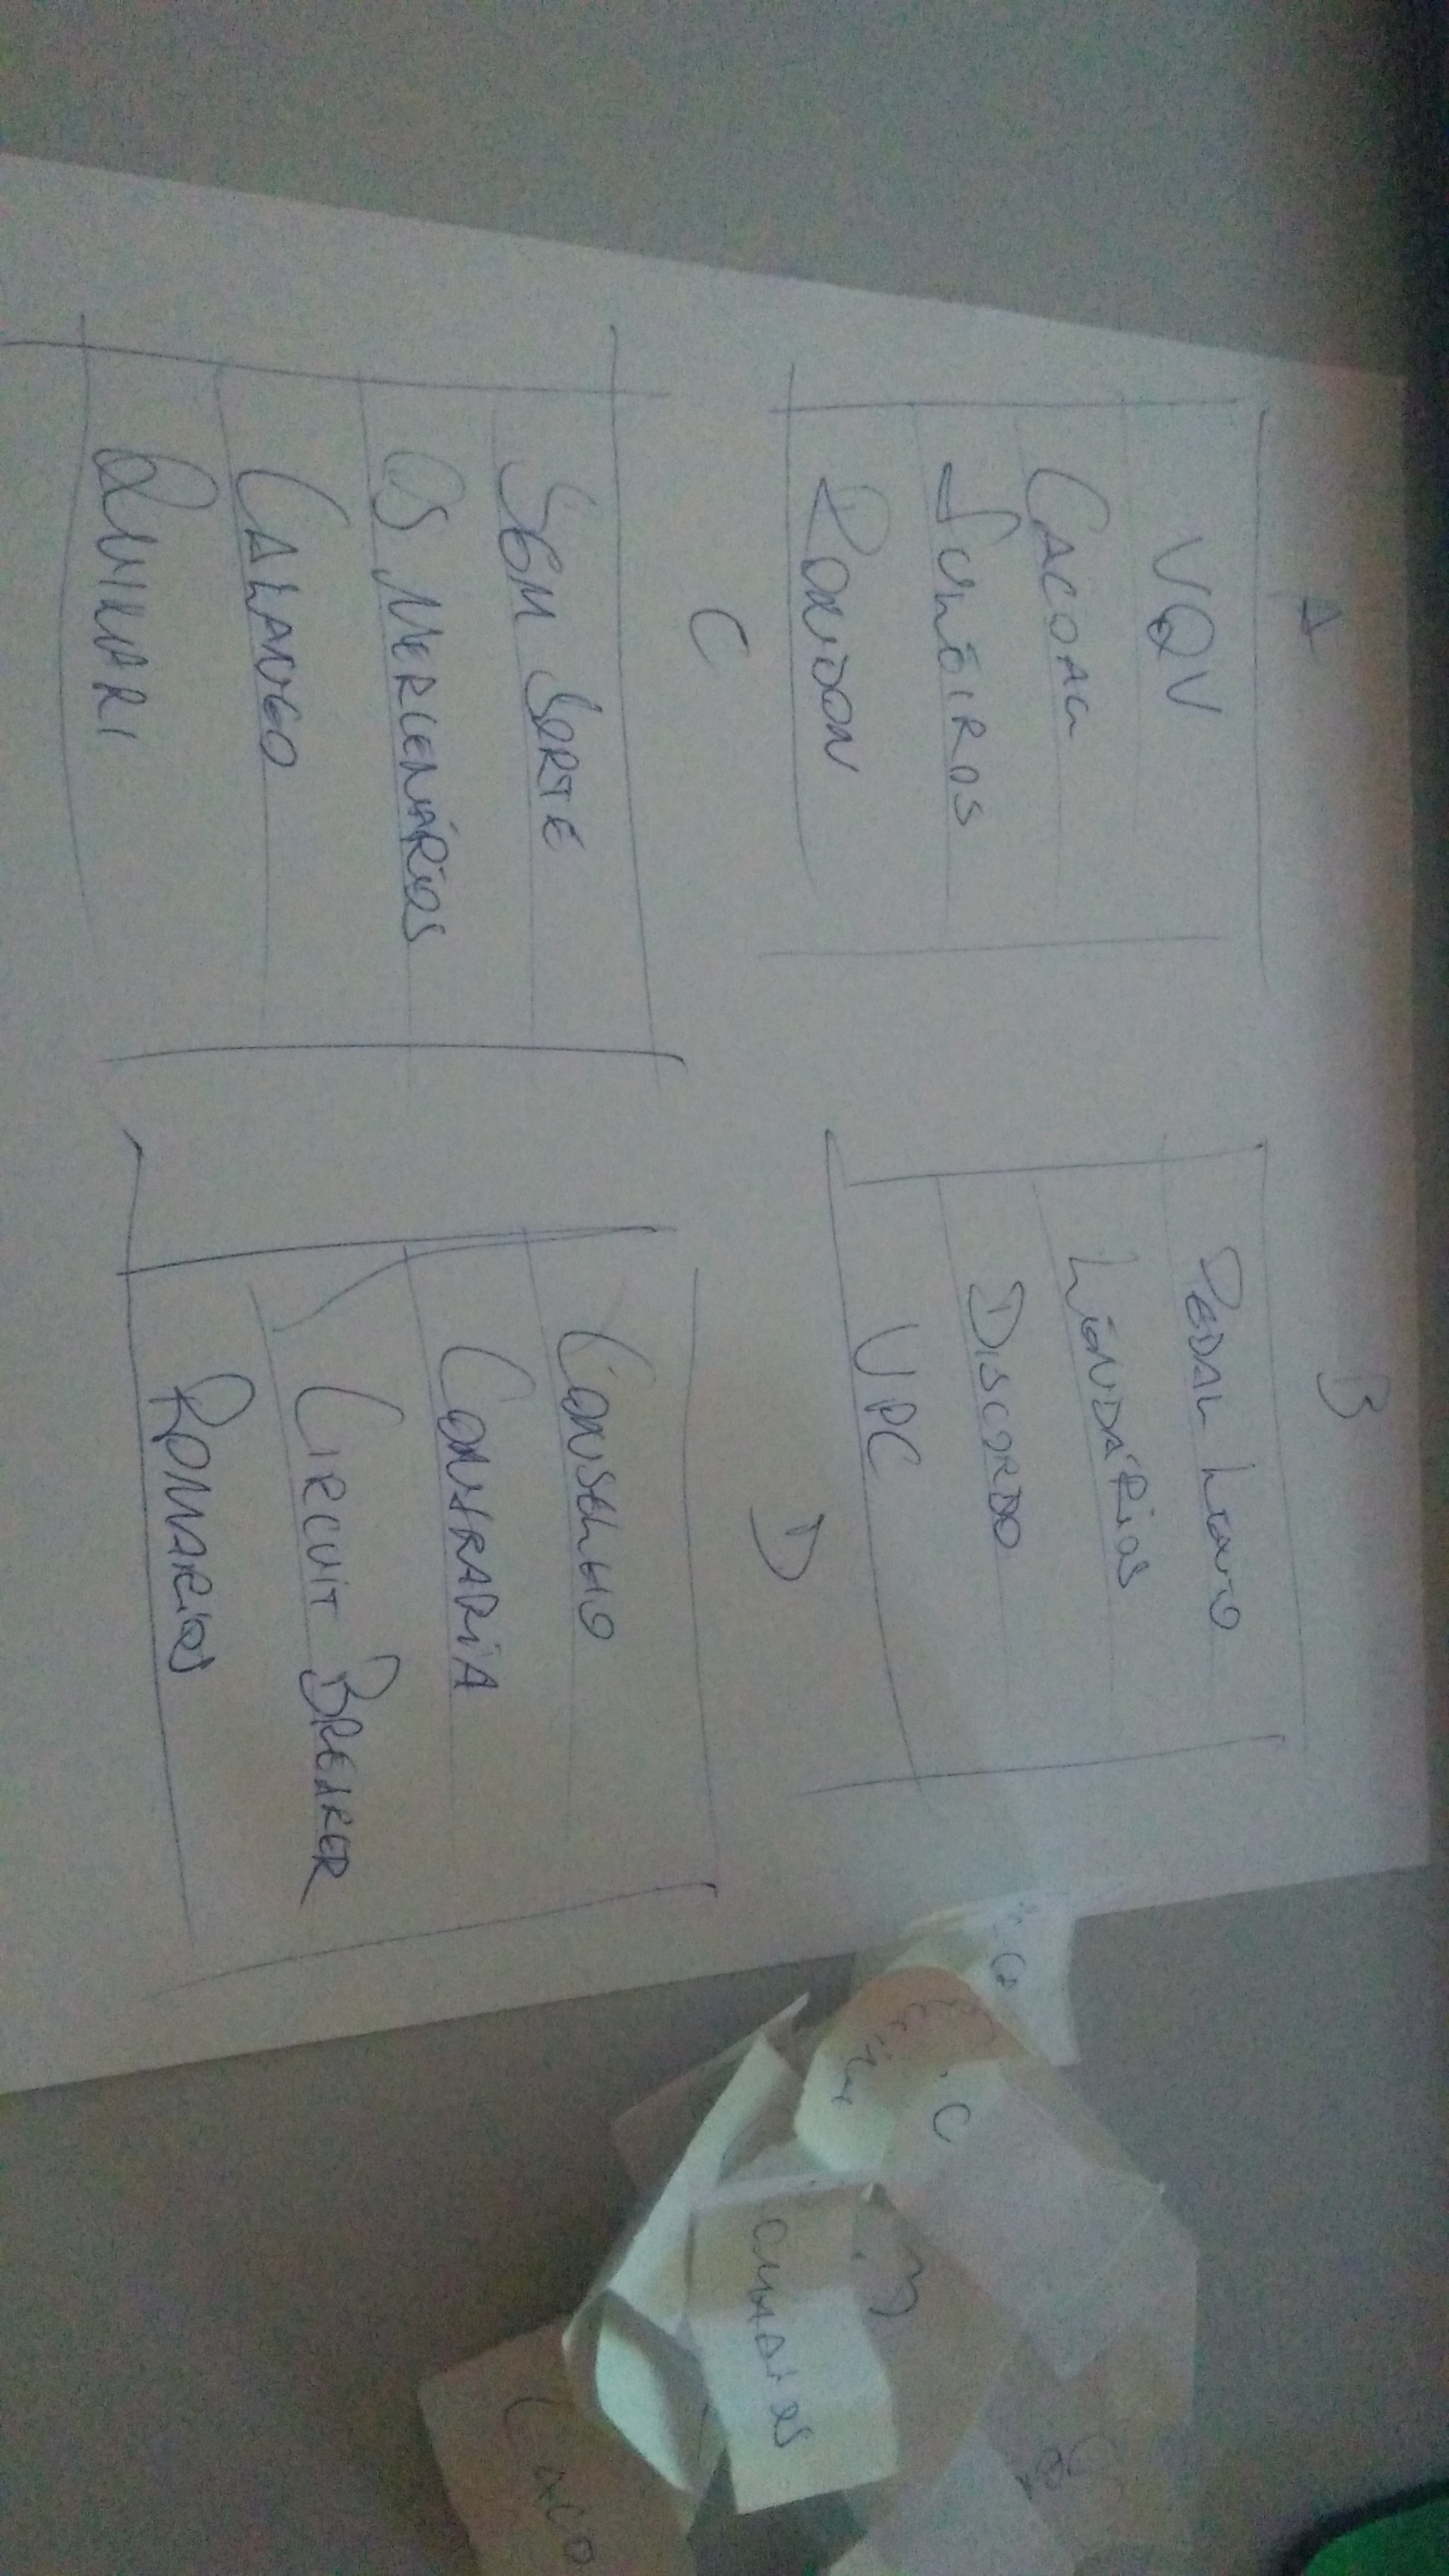 A
VQV
CACOAL
JUNÓIROS
RONDON
B
PEDAL LENTO
LENDÁRIOS
DISCORDO
VPC
C
SEM SORTE
OS MERCENÁRIOS
CALANGO
QUINARI
D
CONSELHO
CONFRARIA
CIRCUIT BREAKER
ROMARIOS
CACO